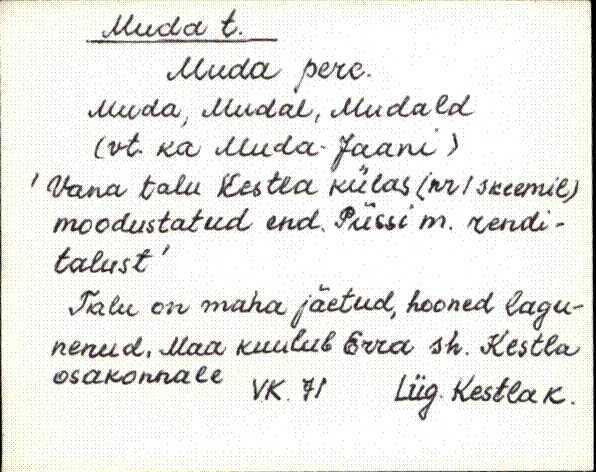 Muda t.
Muda pere.
Muda, Mudal, Mudald
(vt. ka Muda-Jaani)
'Vana talu Kestla külas (nr 1 skeemil)
moodustatud end. Püssi m. rendi-
talust'
Talu on maha jäetud, hooned lagu-
nenud. Maa kuulub Erra sh. Kestla
osakonnale
VK. 71 Lüg. Kestla k.